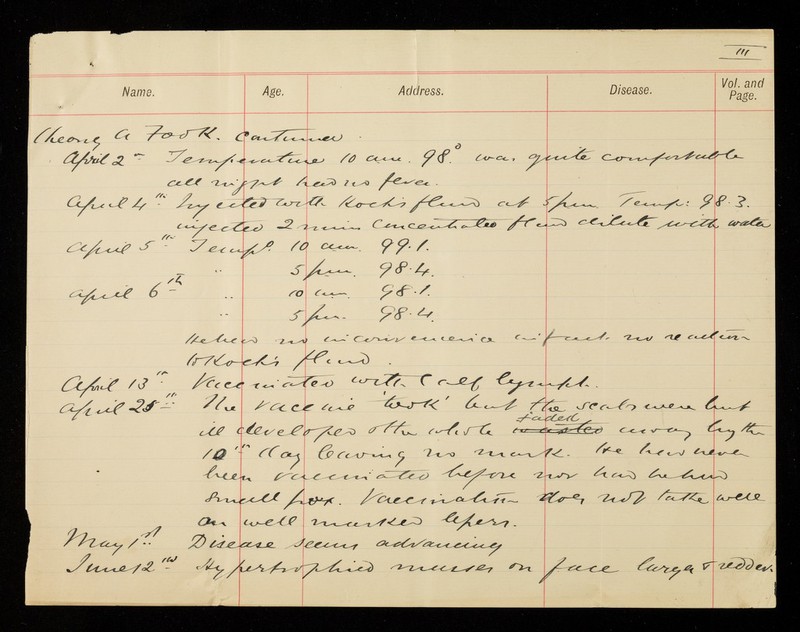 111
Name. Age. Address. Disease. Vol. and Page.
Cheong A Fook. Continued.
April 2nd Temperature 10 am. 98.° was quite comfortable
all night had no fever.
April 4th Injected with Koch's fluid at 5pm Temp: 98.3.
injected 2 mins concentrated fluid dilute with water
April 5th Temp. 10 am. 99.1.
" 5 pm. 98.4.
April 6th " 10 am. 98.1.
" 5 pm. 98.4.
He had no inconvenience in fact no reaction
to Koch's fluid.
April 13th Vaccinated with Calf lymph.
April 25th The vaccine 'took' but the scabs were but
ill developed & the whole wasted faded away by the
10th day leaving no mark. He had never
been vaccinated before nor had he had
small pox. Vaccination does not take well
on well marked lepers.
May 1st Disease seems advancing
June 12th Hypertrophied masses on face larger & redder.